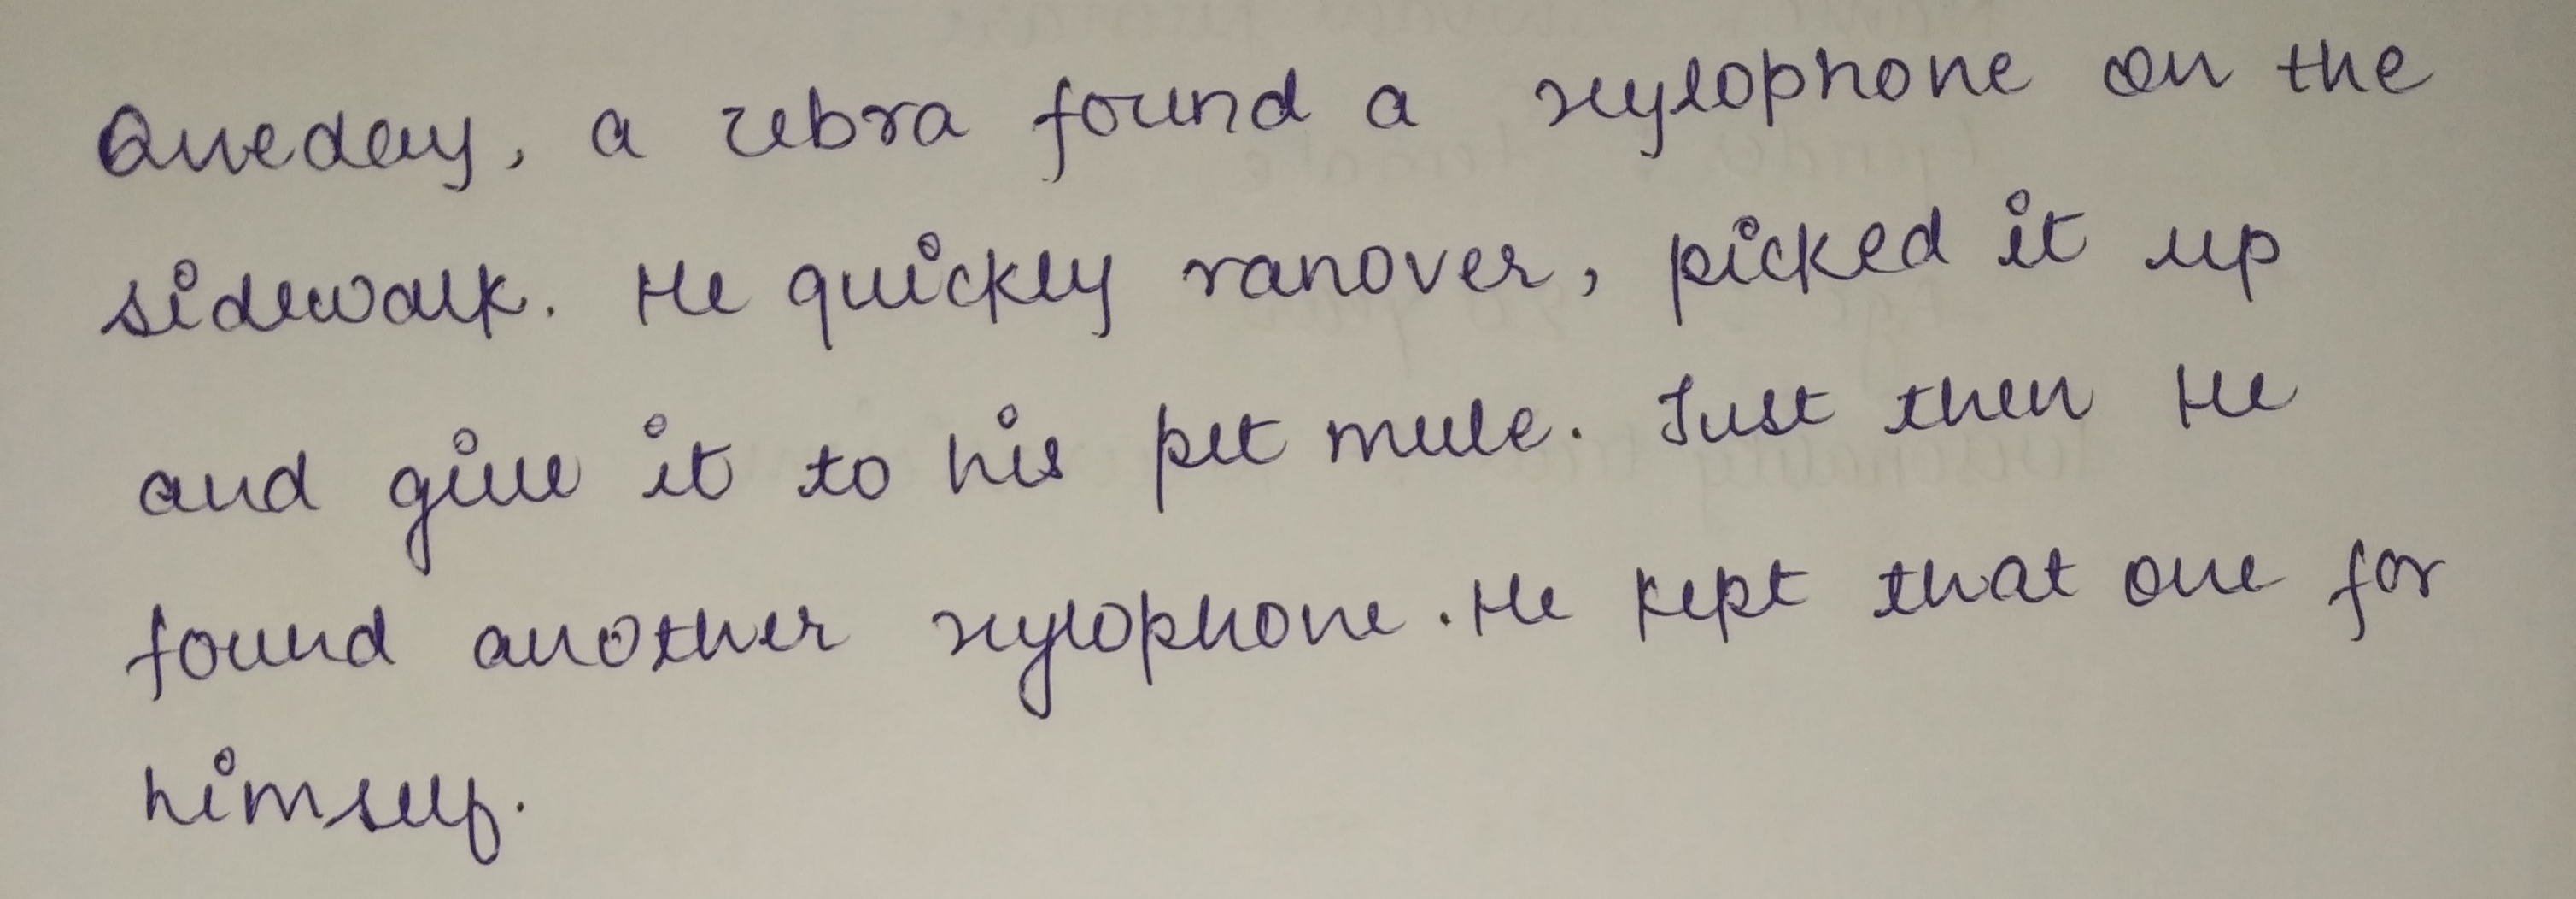 Oneday, a zebra found a xylophone on the
sidewalk. He quickly ranover, picked it up
and give it to his pet mule. Just then He
found another xylophone. He kept that one for
himself.